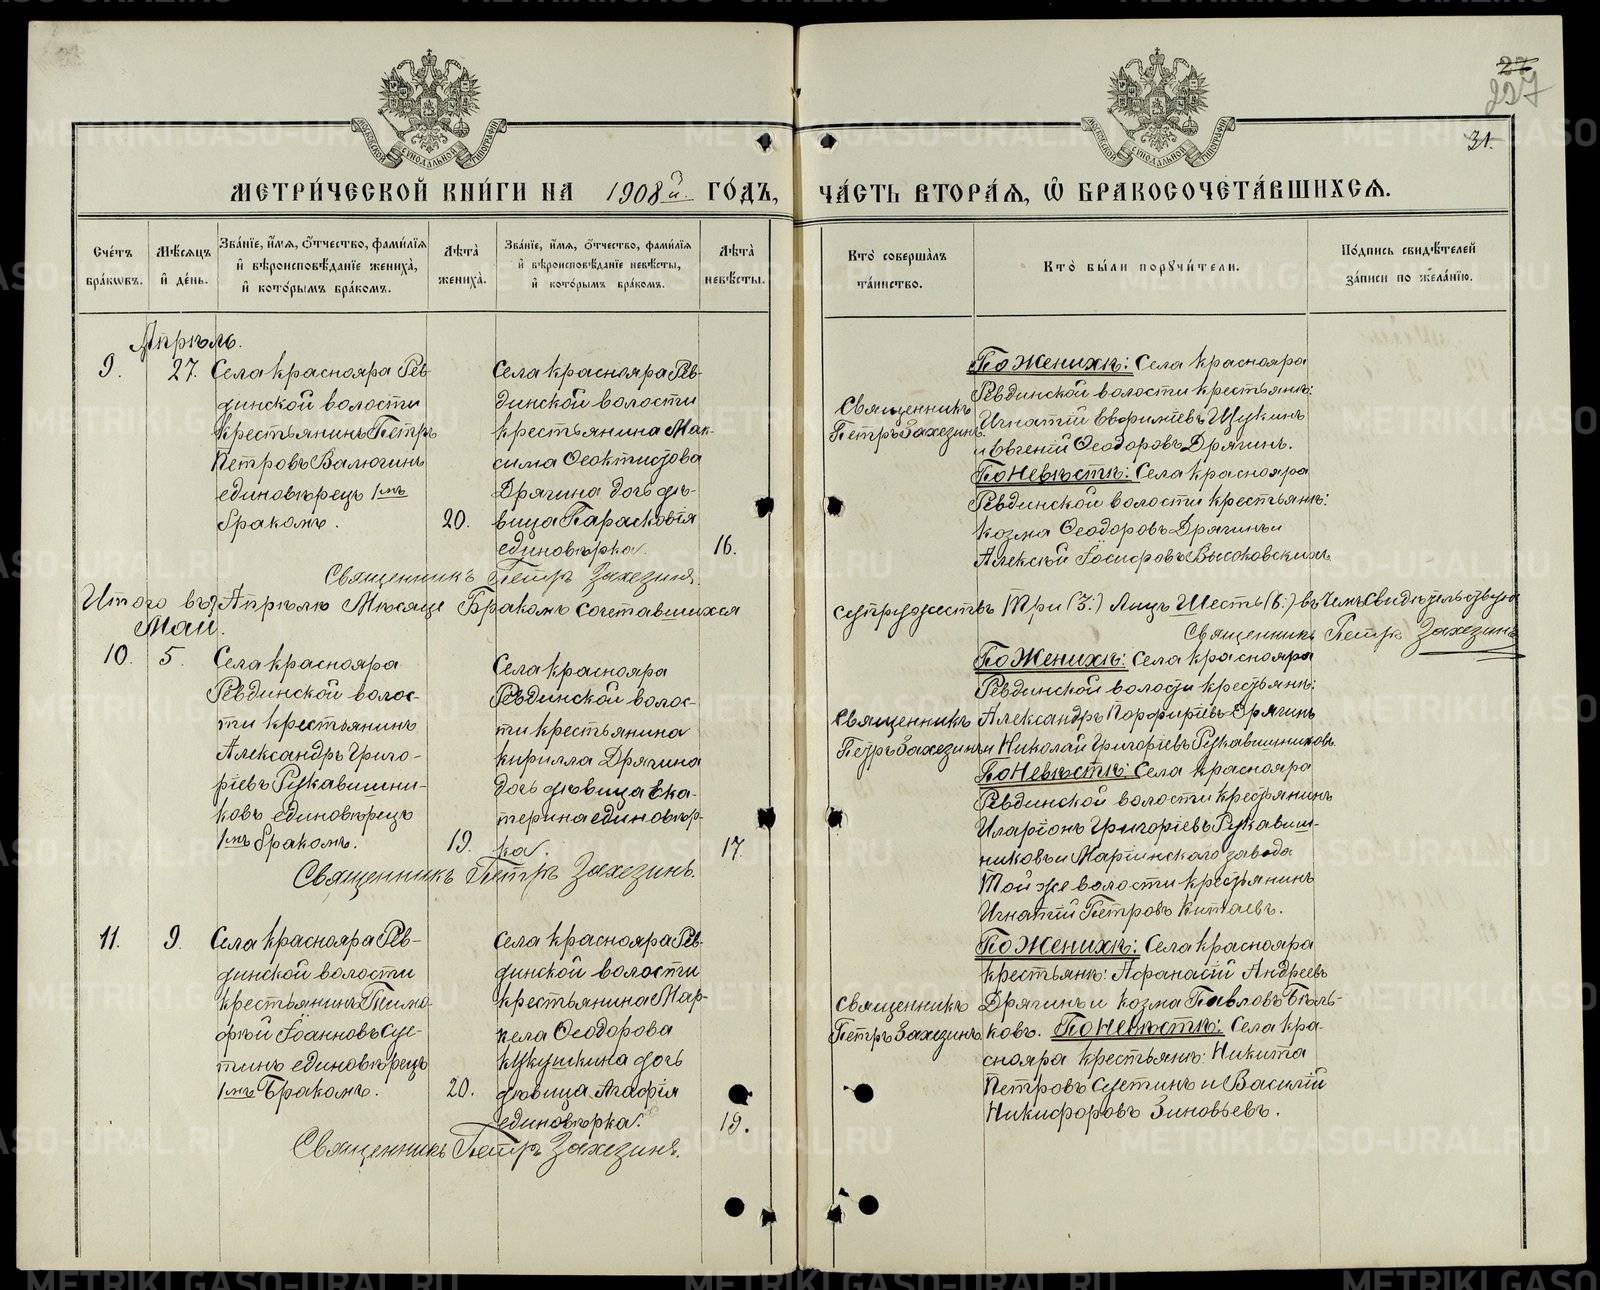 27
227
31.
МЕТРИ́ЧЕСКОЙ КНИ́ГИ НА 1908й. ГО́ДЪ,
ЧА́СТЬ ВТОРА́Я, Ѽ БРАКОСОЧЕТА́ВШИХСЯ.
Сче́тъ бра́кѡвъ.
Мѣ́сяцъ и҆ де́нь.
Зва́нїе, и҆́мя, ѻ҆́тчество, фами́лїя и҆ вѣроисповѣ́данїе жениха̀, и҆ кото́рымъ бра́комъ.
Лѣ́та жениха̀.
Зва́нїе, и҆́мя, ѻ҆́тчество, фами́лїя и҆ вѣроисповѣ́данїе невѣ́сты, и҆ кото́рымъ бра́комъ.
Лѣ́та невѣ́сты.
Кто̀ соверша́лъ та́инство.
Кто̀ бы́ли порꙋчи́тели.
По́дпись свидѣ́телей за́писи по жела́нїю.
Апрѣль.
9.
27.
Села Краснояра Рев-
динской волости
крестьянинъ Петръ
Петровъ Валюгинъ
единовѣрецъ 1мъ
бракомъ.
20.
Села Краснояра Рев-
динской волости
крестьянина Мак-
сима Ѳеоктистова
Дрягина дочь дѣ-
вица Парасковія
единовѣрка.
16.
Священникъ Петръ Захезинъ.
Священникъ
Петръ Захезинъ.
По Женихѣ: Села Краснояра
Ревдинской волости крестьянѣ:
Игнатій Евфиміевъ Щукинъ
и Евгеній Ѳеодоровъ Дрягинъ.
По Невѣстѣ: Села Краснояра
Ревдинской волости крестьянѣ:
Козма Ѳеодоровъ Дрягинъ и
Алексѣй Іосифовъ Высоковскихъ.
Итого въ Апрѣлѣ Мѣсяце Бракомъ сочетавшихся
супружествъ Три (3:) Лицъ Шесть (6:) въ чемъ свидѣтельствую
Священникъ Петръ Захезинъ
Май.
10.
5.
Села Краснояра
Ревдинской волос-
ти крестьянинъ
Александръ Григо-
ріевъ Рукавишни-
ковъ единовѣрецъ
1мъ бракомъ.
19.
Села Краснояра
Ревдинской волос-
ти крестьянина
Кирилла Дрягина
дочь дѣвица Ека-
терина единовѣр-
ка.
17.
Священникъ Петръ Захезинъ.
Священникъ
Петръ Захезинъ
По Женихѣ: Села Краснояра
Ревдинской волости крестьянѣ:
Александръ Порфиріевъ Дрягинъ
и Николай Григоріевъ Рукавишниковъ.
По Невѣстѣ: Села Краснояра
Ревдинской волости крестьянинъ
Иларіонъ Григоріевъ Рукавиш-
никовъ и Маріинскаго завода
той же волости крестьянинъ
Игнатій Петровъ Китаевъ.
11.
9.
Села Краснояра Рев-
динской волости
крестьянинъ Тимо-
фей Іоанновъ Суе-
тинъ единовѣрецъ
1мъ Бракомъ.
20.
Села Краснояра Рев-
динской волости
крестьянина Мар-
кела Ѳеодорова
дочь
дѣвица Агафія
единовѣрка.
19.
Священникъ Петръ Захезинъ.
Священникъ
Петръ Захезинъ
По Женихѣ: Села Краснояра
крестьянѣ: Афанасій Андреевъ
Дрягинъ и Козма Павловъ Бѣль-
ковъ. По Невѣстѣ: Села Кра-
снояра крестьянѣ: Никита
Петровъ Суетинъ и Василій
Никифоровъ Зиновьевъ.
METRIKI.GASO-URAL.RU